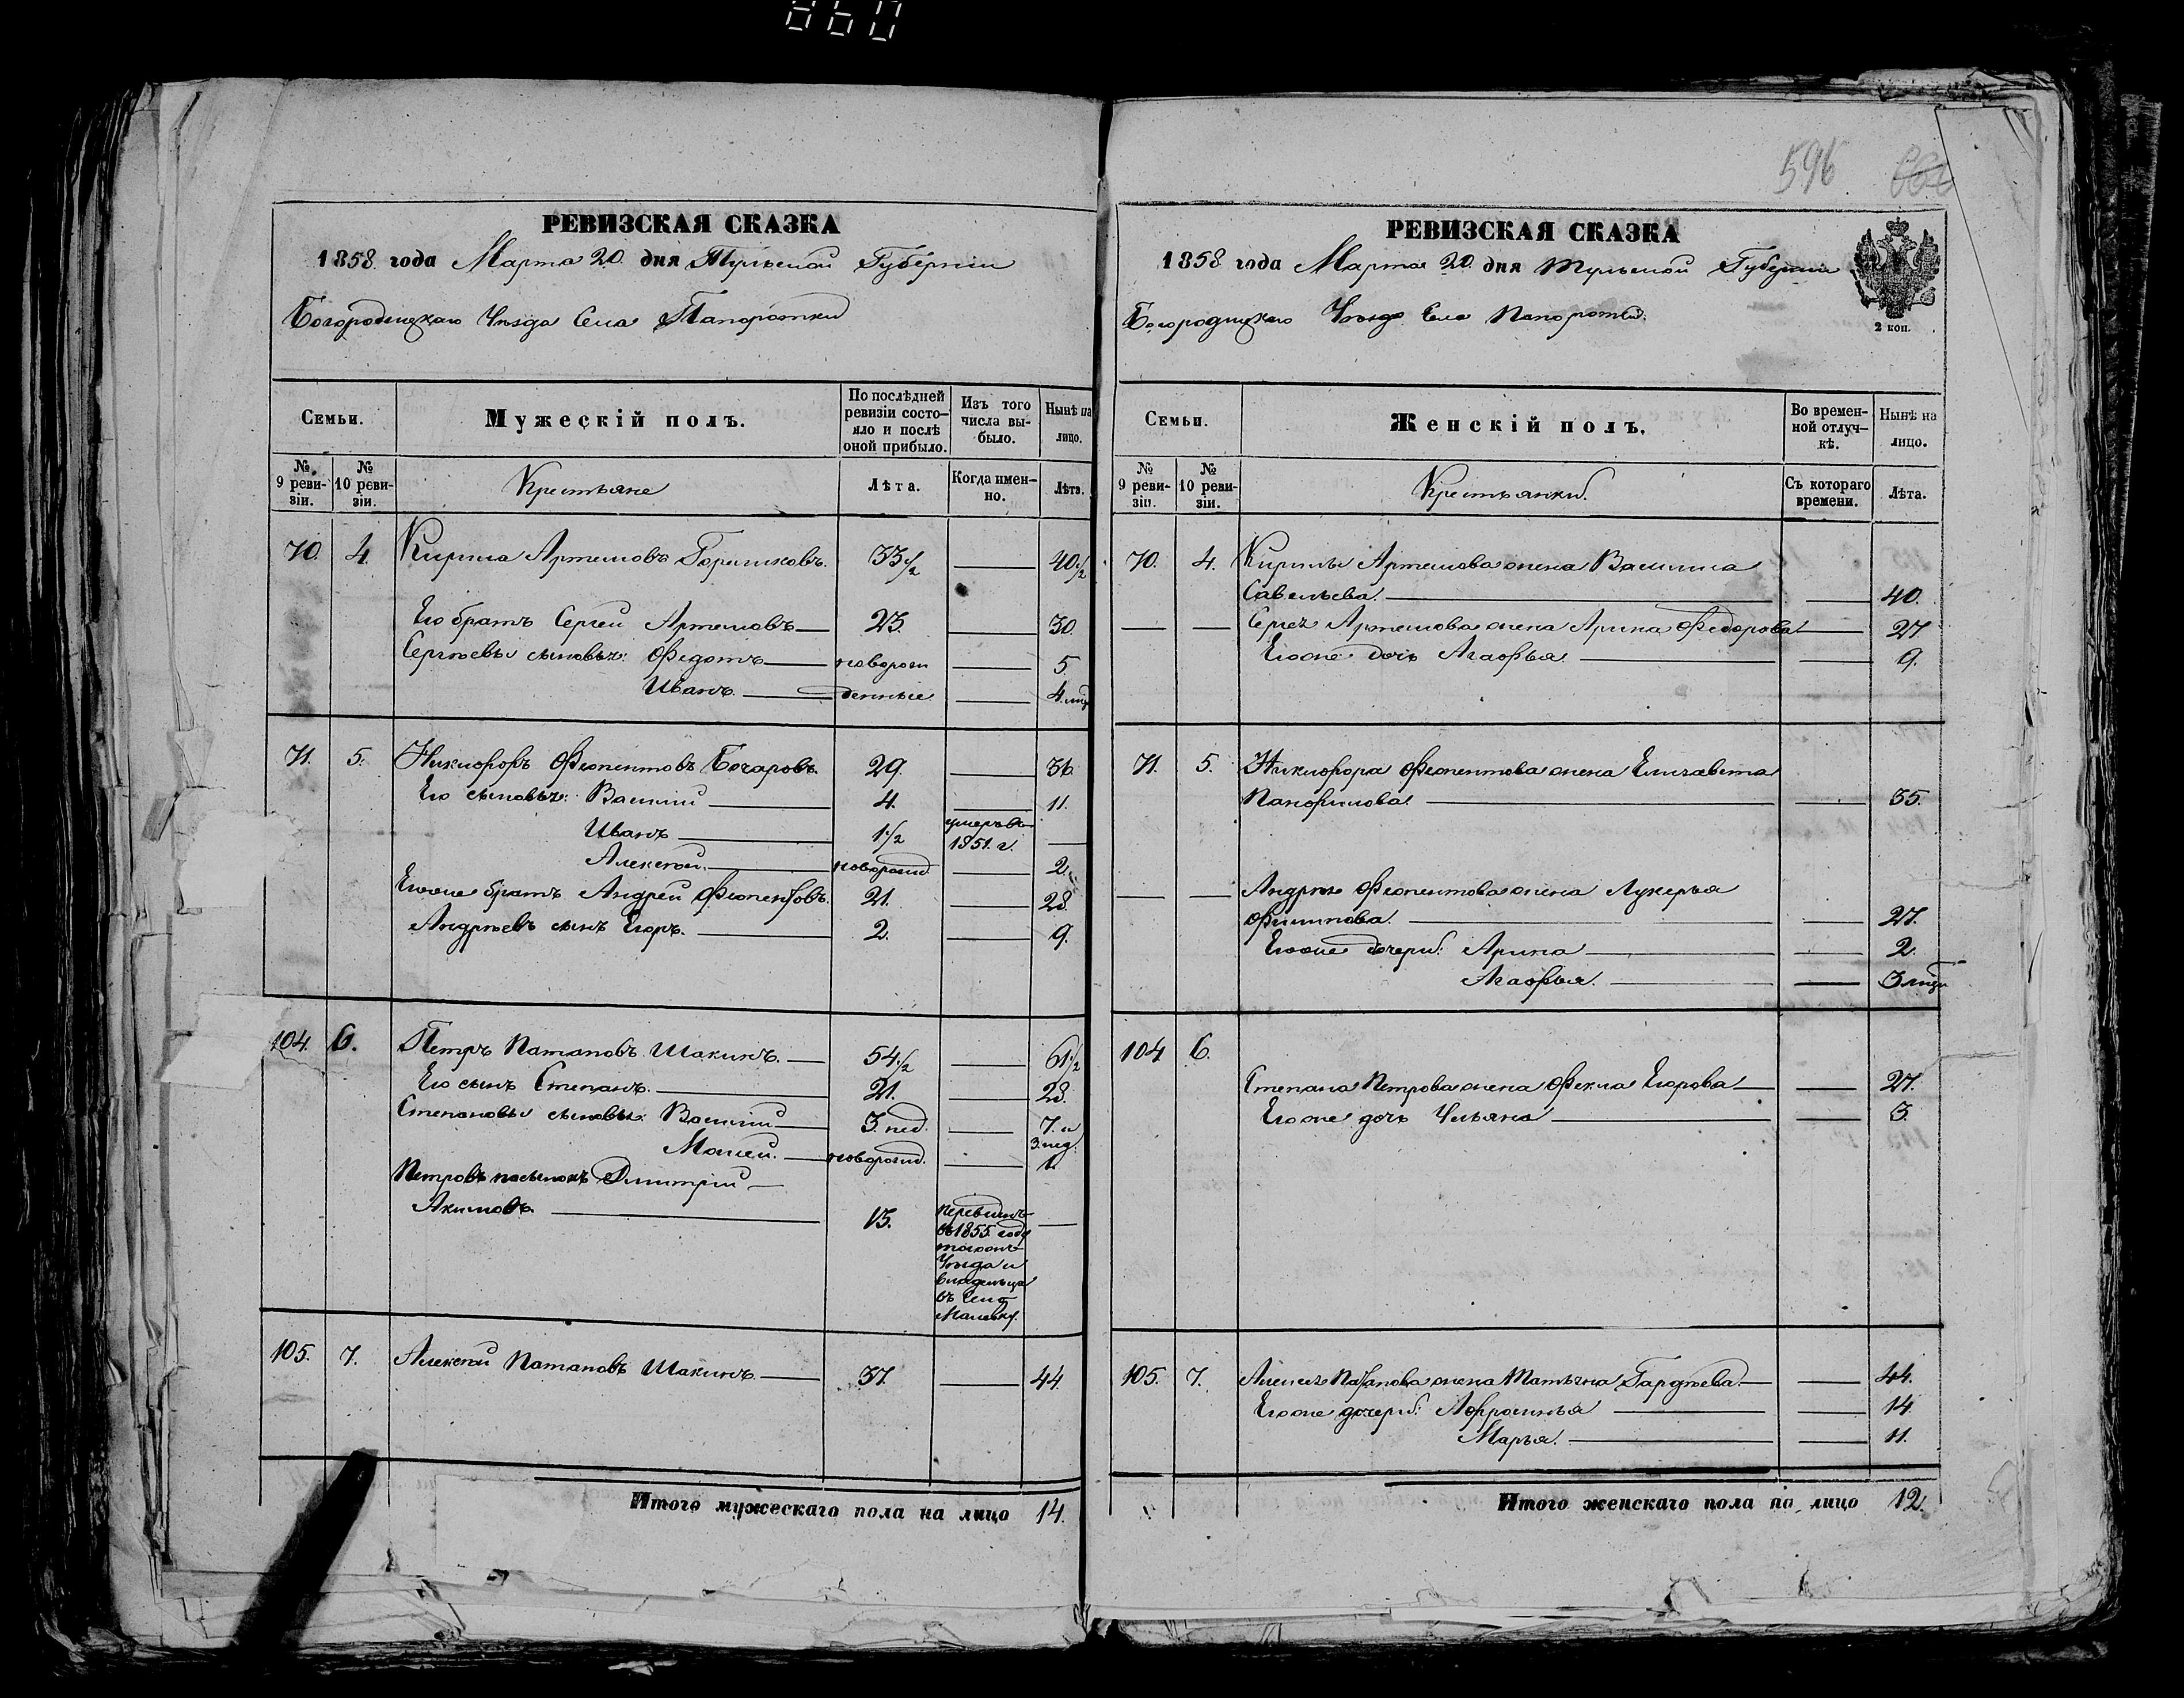 860
РЕВИЗСКАЯ СКАЗКА
1858 года Марта 20 дня Тульской Губерніи
Богородицкаго Уѣзда Села Папоротки
Семьи.
Мужескій полъ.
По послѣдней ревизіи состо-
яло и послѣ оной прибыло.
Изъ того числа вы-
было.
Нынѣ на лицо.
№ 9 реви-
зіи.
№ 10 реви-
зіи.
Крестьяне
Лѣта.
Когда имен-
но.
Лѣта.
70. 4. Кирила Артемовъ 33 1/2 40 1/2
Его братъ Сергей Артемовъ 23. 30.
Сергѣевы сыновья: Федотъ новорож 5
Иванъ денные 4. мѣс
71. 5. Никифоръ Феопентовъ Бочаровъ 29. 36.
Его сыновья: Василій 4. 11.
Иванъ 1 1/2 умеръ въ 1851. г.
Алексѣй новорожд. 2.
Егоже братъ Андрей Феопентовъ. 21. 28.
Андрѣевъ сынъ Егоръ. 2. 9.
104. 6. Петръ Потаповъ Шакинъ. 54 1/2 61 1/2
Его сынъ Степанъ. 21. 28.
Степановы сыновья: Василій 3. нед. 7. и 3. нед.
Мосей. новорожд. 1.
Петровъ пасынокъ Димитрій
Акимовъ. 15. переведенъ
въ 1855 году
тогоже
Уѣзда и
владельца
въ село
Малевку.
105. 7. Алексѣй Потаповъ Шакинъ 37. 44.
Итого мужескаго пола на лицо 14.
596
РЕВИЗСКАЯ СКАЗКА
1858 года Марта 20 дня Тульской Губерніи
Богородицкаго Уѣзда Села Папоротки.
2 коп.
Семьи.
Женскій полъ.
Во времен-
ной отлуч-
кѣ.
Нынѣ на лицо.
№ 9 реви-
зіи.
№ 10 реви-
зіи.
Крестьянки.
Съ котораго времени.
Лѣта.
70. 4. Кирилы Артемова жена Василиса
Савельева. 40.
Сергея Артемова жена Арина Федорова 27
Егоже дочь Агафья. 9.
71. 5. Никифора Феопентова жена Елизавета
Панфилова. 35.
Андрея Феопентова жена Лукерья
Филипова. 27.
Егоже дочери: Арина 2.
Агафья. 3 мѣся
104 6.
Степана Петрова жена Фекла Егорова 27.
Егоже дочь Ульяна 3.
105. 7. Алексея Потапова жена Татьяна Гардѣева. 44.
Егоже дочери: Афросинья 14
Марья. 11.
Итого женскаго пола на лицо 12.